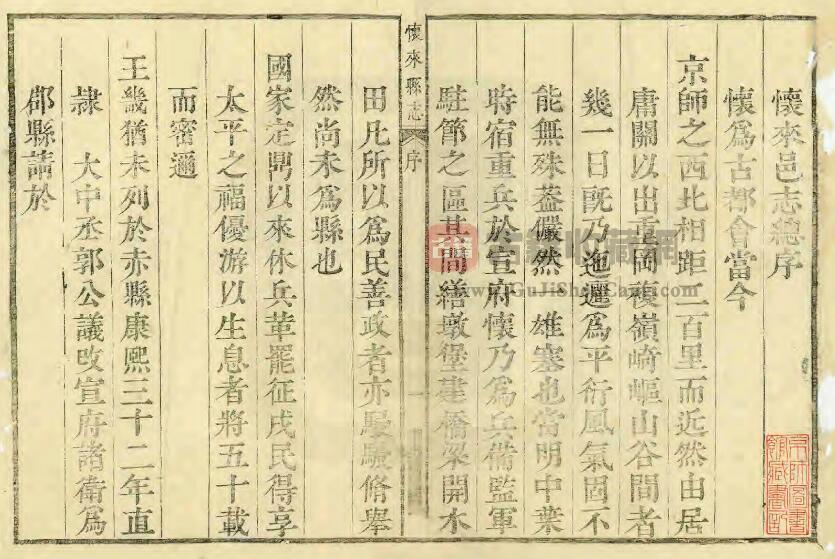 懷來邑志總序
懷為古都會當今
京師之西北相距二百里而近然由居
庸關以出重岡複嶺崎嶇山谷間者
幾一日旣乃迤邐為平衍風氣固不
能無殊葢儼然一雄塞也當明中葉
時宿重兵於宣府懷乃為兵備監軍
駐節之區其間繕墩堡建橋梁開水
懷來縣志
序
一
田凡所以為民善政者亦駸駸脩舉
然尚未為縣也
國家定鼎以來休兵革罷征戍民得享
太平之福優游以生息者將五十載
而密邇
王畿猶未列於赤縣康熙三十二年直
隸 大中丞郭公議改宣府諸衛為
郡縣請於
www.GuJiShouCang.com
京師圖書
館藏書畫